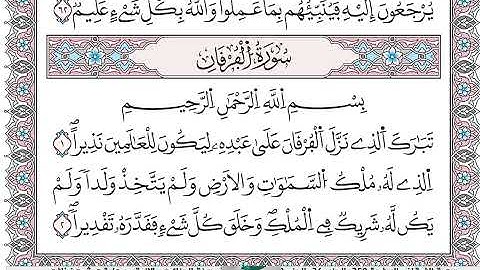 يُرْجَعُونَ إِلَيْهِ فَيُنَبِّئُهُم بِمَا عَمِلُوا۟ وَاللَّهُ بِكُلِّ شَےْءٍ عَلِيمٌۢ ٦٢
سُورَةُ الْفُرْقَانِ
بِسْمِ اللَّهِ الرَّحْمَٰنِ الرَّحِيمِ
تَبَارَكَ اَلذِے نَزَّلَ اَلْفُرْقَانَ عَلَىٰ عَبْدِهِۦ لِيَكُونَ لِلْعَٰلَمِينَ نَذِيراً ١
اِلذِے لَهُۥ مُلْكُ اُلسَّمَٰوَٰتِ وَالَارْضِ وَلَمْ يَتَّخِذْ وَلَداً وَلَمْ
يَكُن لَّهُۥ شَرِيكٌ فِے اِلْمُلْكِ وَخَلَقَ كُلَّ شَےْءٍ فَقَدَّرَهُۥ تَقْدِيراً ٢